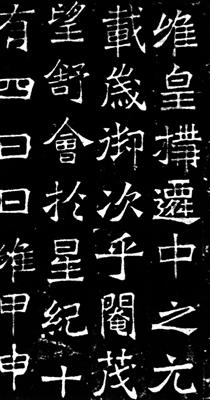 惟皇搆遷中之元
載歲御次乎閹茂
望舒會於星紀十
有四日日維甲申